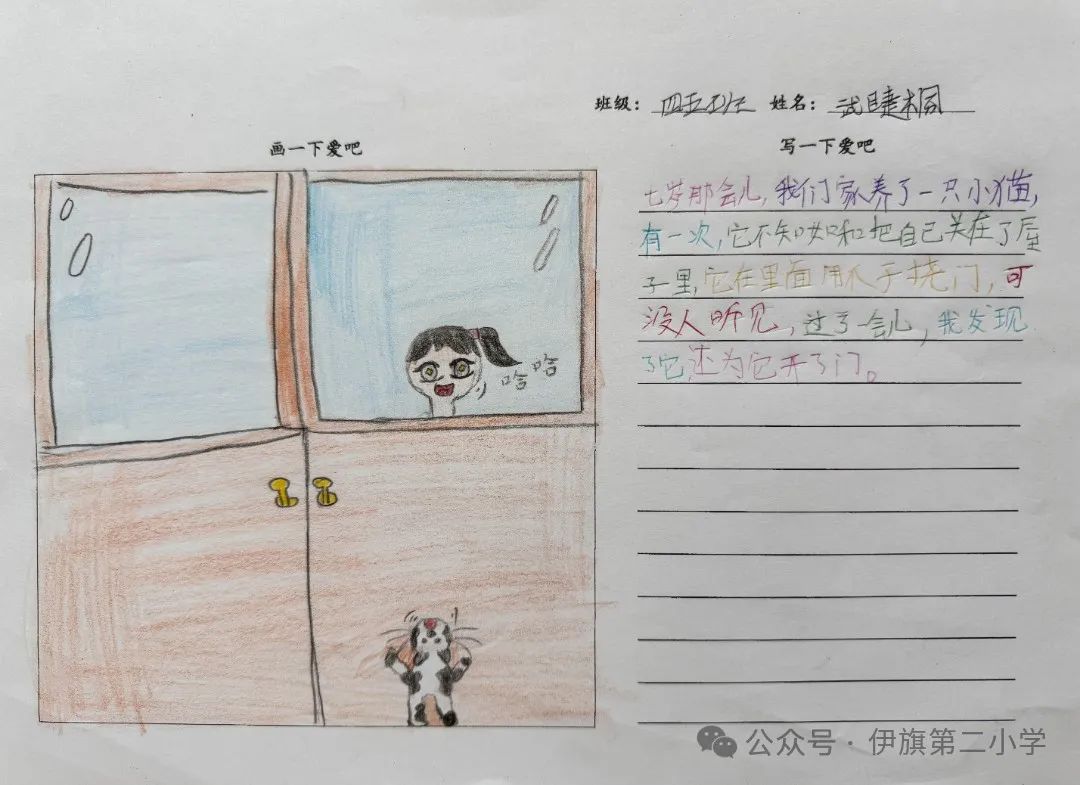 班级：四五班 姓名：武睫桐
画一下爱吧
写一下爱吧
七岁那会儿，我们家养了一只小猫，
有一次，它不知如何把自己关在了屋
子里，它在里面用爪子挠门，可
没人听见，过了一会儿，我发现
了它，还为它开了门。
哈哈
公众号·伊旗第二小学